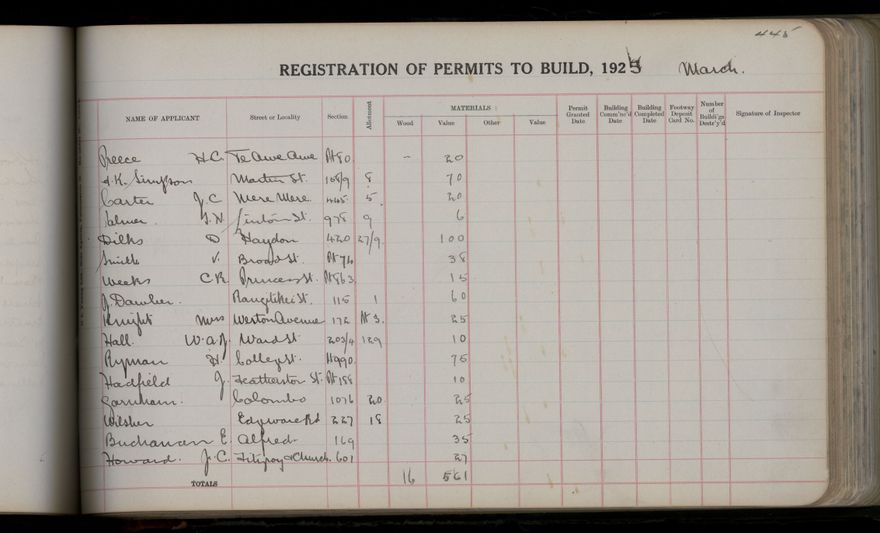 445
REGISTRATION OF PERMITS TO BUILD, 1925 March.
NAME OF APPLICANT Street or Locality Section Allotment MATERIALS: Wood Value Other Value Permit Granted Date Building Comm'nc'd Date Building Completed Date Footway Deposit Card No. Number of Buildi'gs Destr'y'd Signature of Inspector
Preece H.C. Te Awe Awe Pt 80 – 20
A.K. Simpson Martin St. 108/9 8 70
Carter J.C Mere Mere 445 5. 20
Palmer Linton St. 978 9 6
Dilks D Haydon 420 27/9 100
Smith V. Broad St. Pt 76 38
Weeks C R. Princess St. Pt 863 15
J Dawber. Rangitikei St. 115 1 60
Knight Mrs Weston Avenue 172 Pt 3. 25
Hall W.A.J. Ward St 203/4 129 10
Ryman H. College St. 990 75
Hadfield J. Featherston St. Pt 158 10
Garnham. Colombo 1076 20 25
Wilsher Edgware Rd 227 18 25
Buchanan E. Alfred 169 35
Howard. J.C. Fitzroy & Church. 601 27
TOTALS 16 561